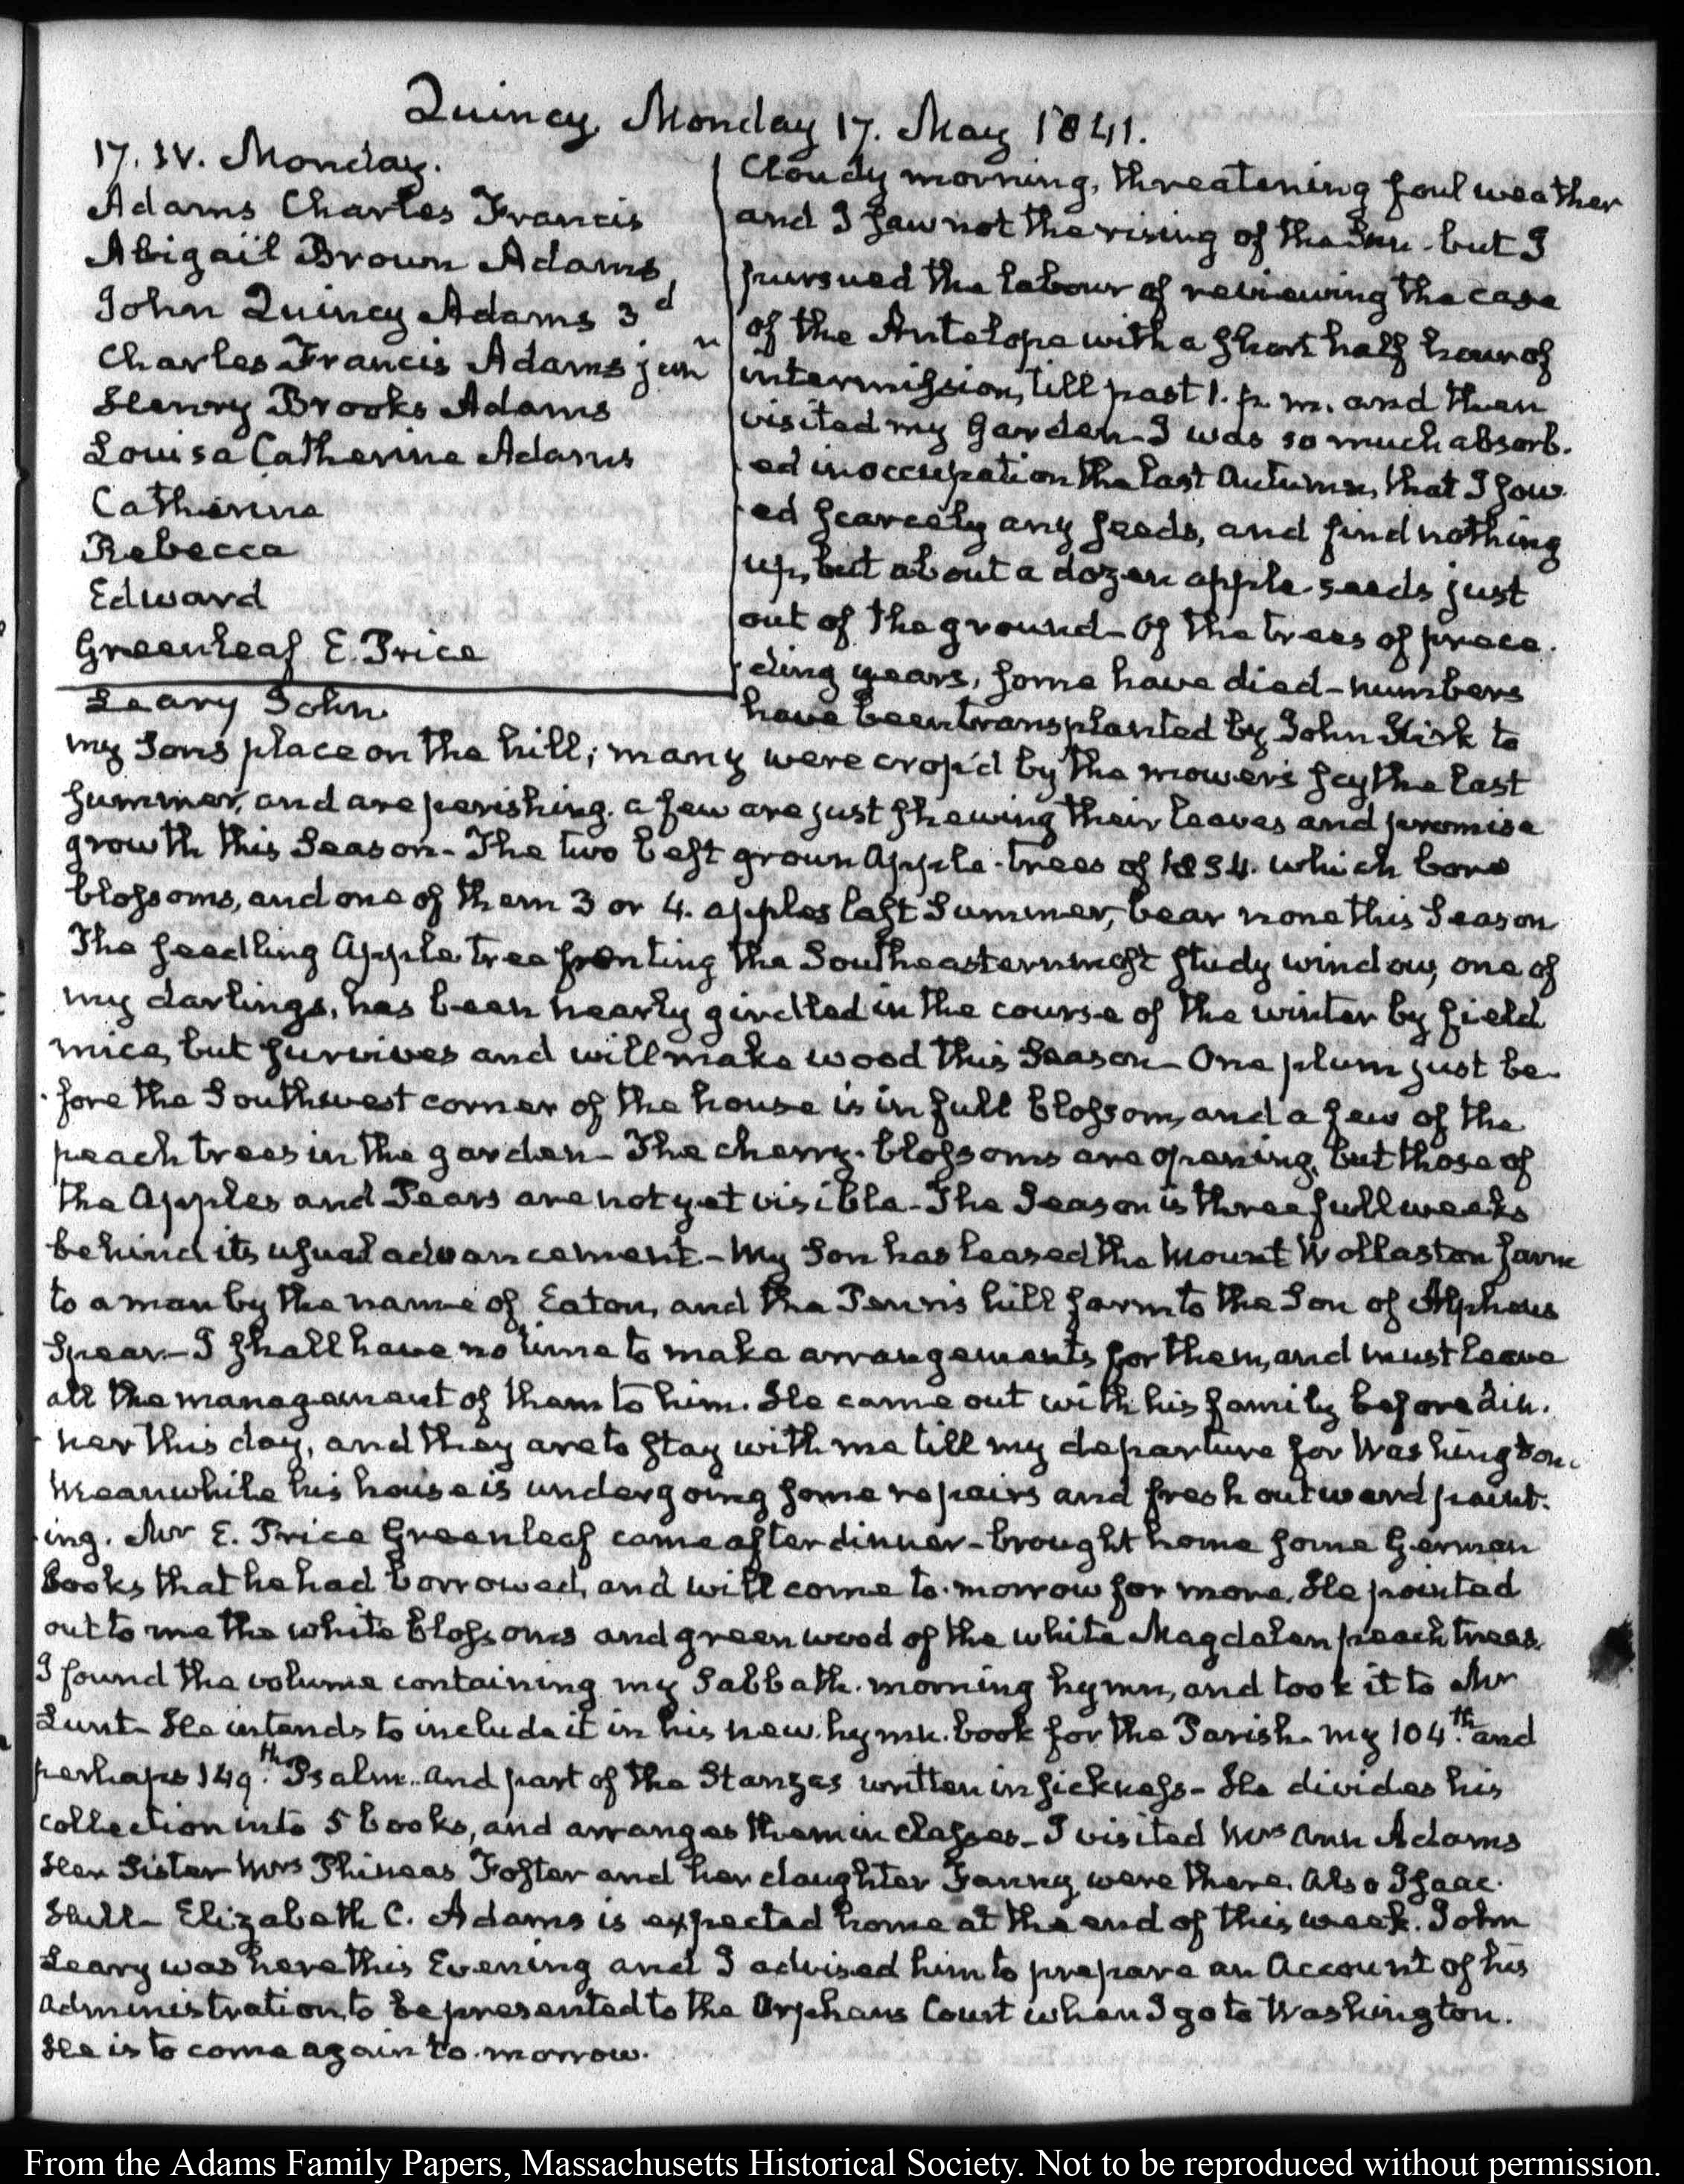 Quincy, Monday 17. May 1841.
17. IV. Monday.
Adams Charles Francis
Abigail Brown Adams
John Quincy Adams 3d
Charles Francis Adams junr
Henry Brooks Adams
Louisa Catherine Adams
Catherine
Rebecca
Edward
Greenleaf E. Price
Leary John
Cloudy morning, threatening foul weather
and I saw not the rising of the Sun - but I
pursued the labour of reviewing the case
of the Antelope with a short half hour of
intermission, till past 1. p. m. and then
visited my Garden - I was so much absorb-
ed in occupation the last Autumn, that I sow-
ed scarcely any seeds, and find nothing
up, but about a dozen apple-seeds just
out of the ground - Of the trees of prece-
ding years, some have died - numbers
have been transplanted by John Kirk to
my Sons place on the hill; many were crop'd by the mower's scythe last
summer, and are perishing. a few are just shewing their leaves and promise
growth this Season - The two best grown Apple-trees of 1834. which bore
blossoms, and one of them 3 or 4. apples last Summer, bear none this Season
The seedling Apple tree fronting the Southeasternmost study window, one of
my darlings, has been nearly girdled in the course of the winter by field
mice, but survives and will make wood this Season - One plum just be-
fore the Southwest corner of the house is in full blossom, and a few of the
peach trees in the garden - The cherry-blossoms are opening, but those of
the Apples and Pears are not yet visible - The Season is three full weeks
behind its usual advancement - My Son has leased the Mount Wollaston farm
to a man by the name of Eaton, and the Penn's hill farm to the Son of Alpheus
Spear - I shall have no time to make arrangements for them, and must leave
all the management of them to him. He came out with his family before din-
ner this day, and they are to stay with me till my departure for Washington.
Meanwhile his house is undergoing some repairs and fresh outward paint-
ing. Mr E. Price Greenleaf came after dinner - brought home some German
books that he had borrowed, and will come to-morrow for more. He pointed
out to me the white blossoms and green wood of the white Magdalen peach trees.
I found the volume containing my Sabbath-morning hymn, and took it to Mr
Lunt - He intends to include it in his new hymn-book for the Parish - my 104.th and
perhaps 149.th Psalm - and part of the Stanzas written in sickness - He divides his
collection into 5 books, and arranges them in classes - I visited Mrs Ann Adams
Her Sister Mrs Phineas Foster and her daughter Fanny were there. Also Isaac
Hull - Elizabeth C. Adams is expected home at the end of this week. John
Leary was here this Evening and I advised him to prepare an Account of his
administration to be presented to the Orphans Court when I go to Washington.
He is to come again to-morrow.
From the Adams Family Papers, Massachusetts Historical Society. Not to be reproduced without permission.